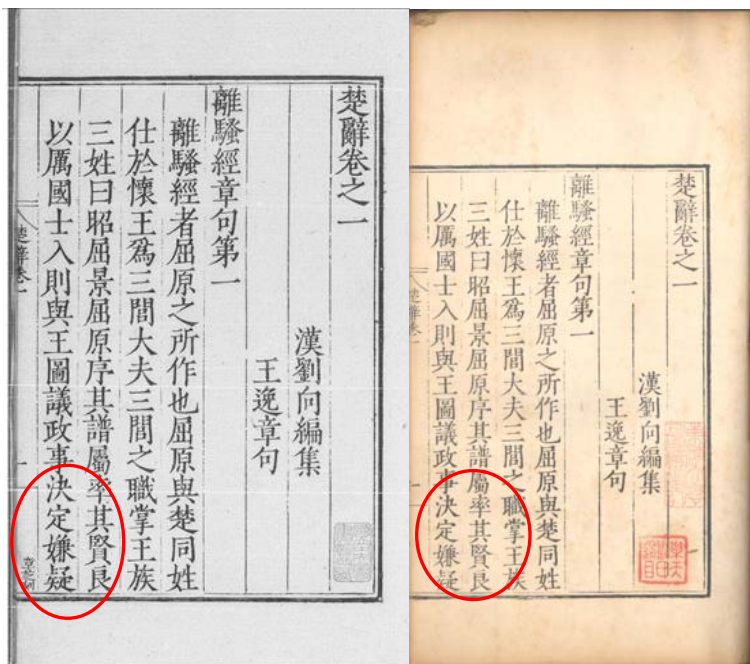 楚辭卷之一
漢劉向編集
王逸章句
離騷經章句第一
離騷經者屈原之所作也屈原與楚同姓
仕於懷王爲三閭大夫三閭之職掌王族
三姓曰昭屈景屈原序其譜屬率其賢良
以厲國士入則與王圖議政事決定嫌疑
楚辭卷一
一
楚辭卷之一
漢劉向編集
王逸章句
離騷經章句第一
離騷經者屈原之所作也屈原與楚同姓
仕於懷王爲三閭大夫三閭之職掌王族
三姓曰昭屈景屈原序其譜屬率其賢良
以厲國士入則與王圖議政事決定嫌疑
楚辭卷一
一